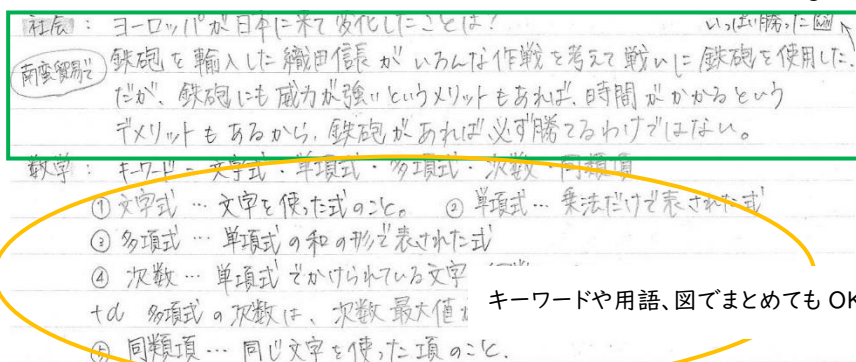 社会: ヨーロッパが日本に来て変化したことは?
いっぱい勝った
南蛮貿易で
鉄砲を輸入した織田信長がいろんな作戦を考えて戦いに鉄砲を使用した。
だが、鉄砲にも威力が強いというメリットもあれば、時間がかかるという
デメリットもあるから、鉄砲があれば必ず勝てるわけではない。
数学: キーワード - 文字式・単項式・多項式・次数・同類項
①文字式…文字を使った式のこと。 ②単項式…乗法だけで表された式
③多項式…単項式の和の形で表された式
④次数…単項式でかけられている文字
+α 多項式の次数は、次数最大値
キーワードや用語、図でまとめても OK
⑤同類項…同じ文字を使った項のこと.